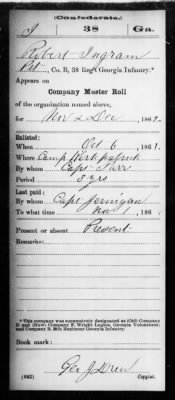 (Confederate.)
I 38 Ga.
Robert Ingram
Pvt, Co. B, 38 Reg't Georgia Infantry.*
Appears on
Company Muster Roll
of the organization named above,
for Nov & Dec, 1862.
Enlisted:
When Oct 6, 1861.
Where Camp Kirkpatrick
By whom Capt
Period 3 yrs
Last paid:
By whom Capt Jernigan
To what time Nov 1, 186
Present or absent Present
Remarks:
*This company was successively designated as (Old) Company
D and (New) Company F, Wright Legion, Georgia Volunteers;
and Company B, 38th Regiment Georgia Infantry.
Book mark:
Geo J Drew
(642) Copyist.